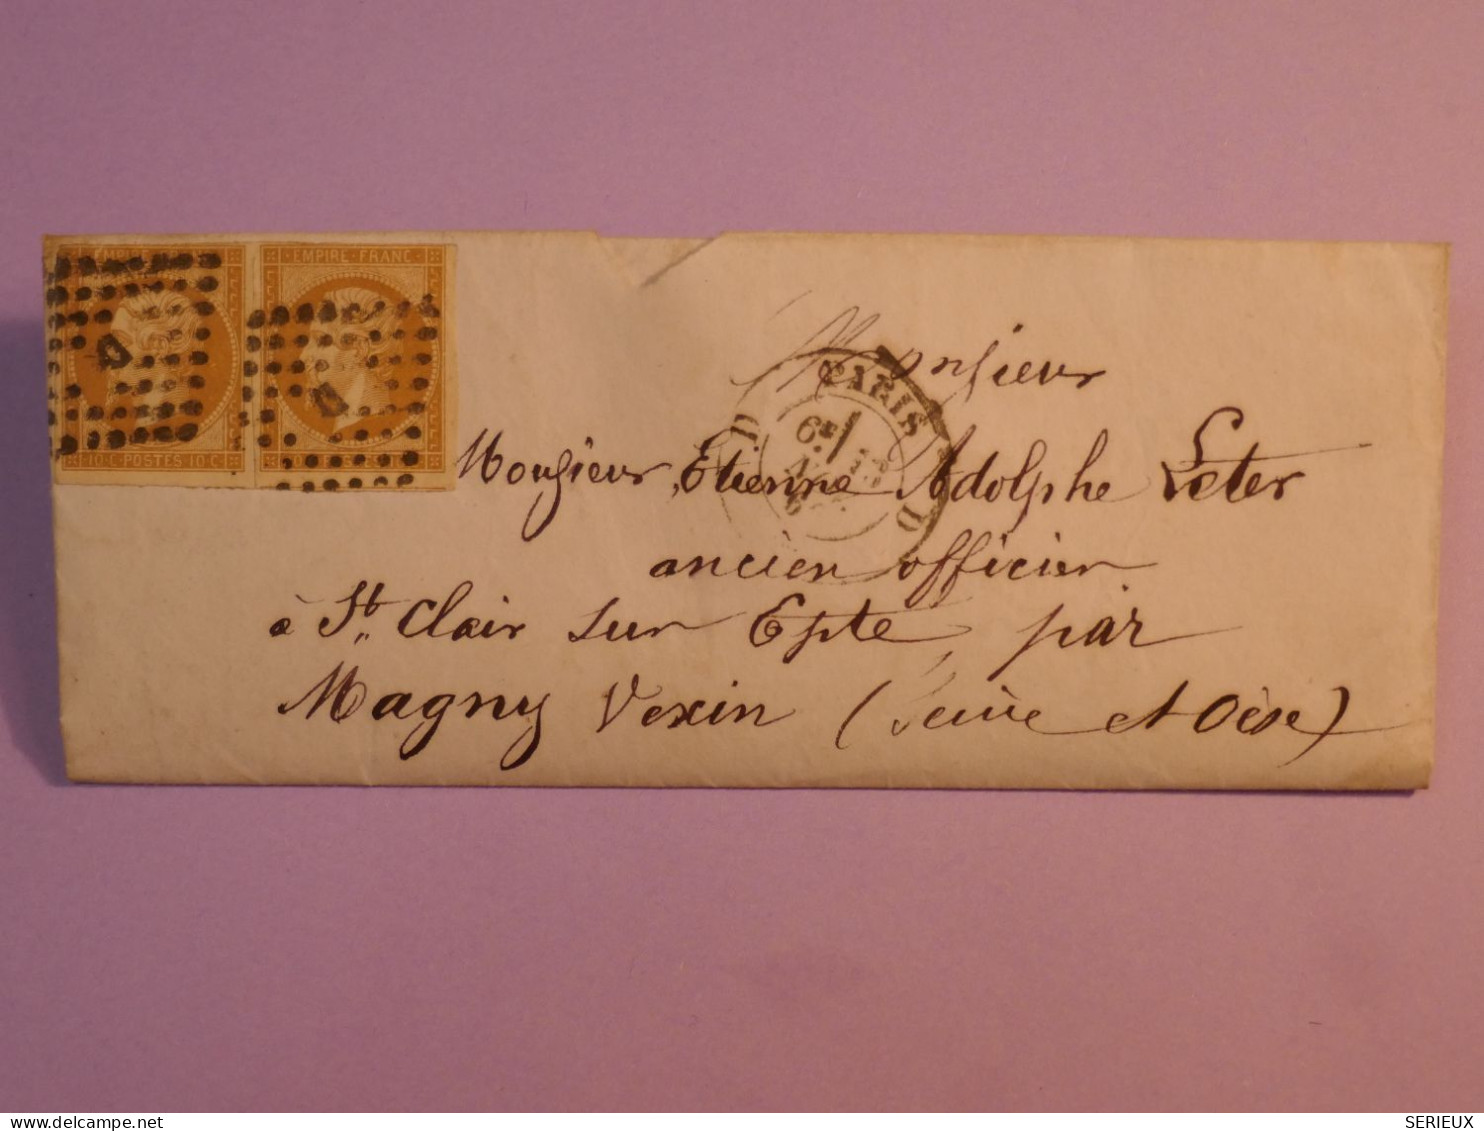 EMPIRE FRANC
10 C. POSTES 10 C.
D
D
PARIS
6E
D
D
Monsieur
Monsieur, Etienne Adolphe Leter
ancien officier
à St. Clair sur Epte, par
Magny Vexin (Seine et Oise)
www.delcampe.net
SERIEUX